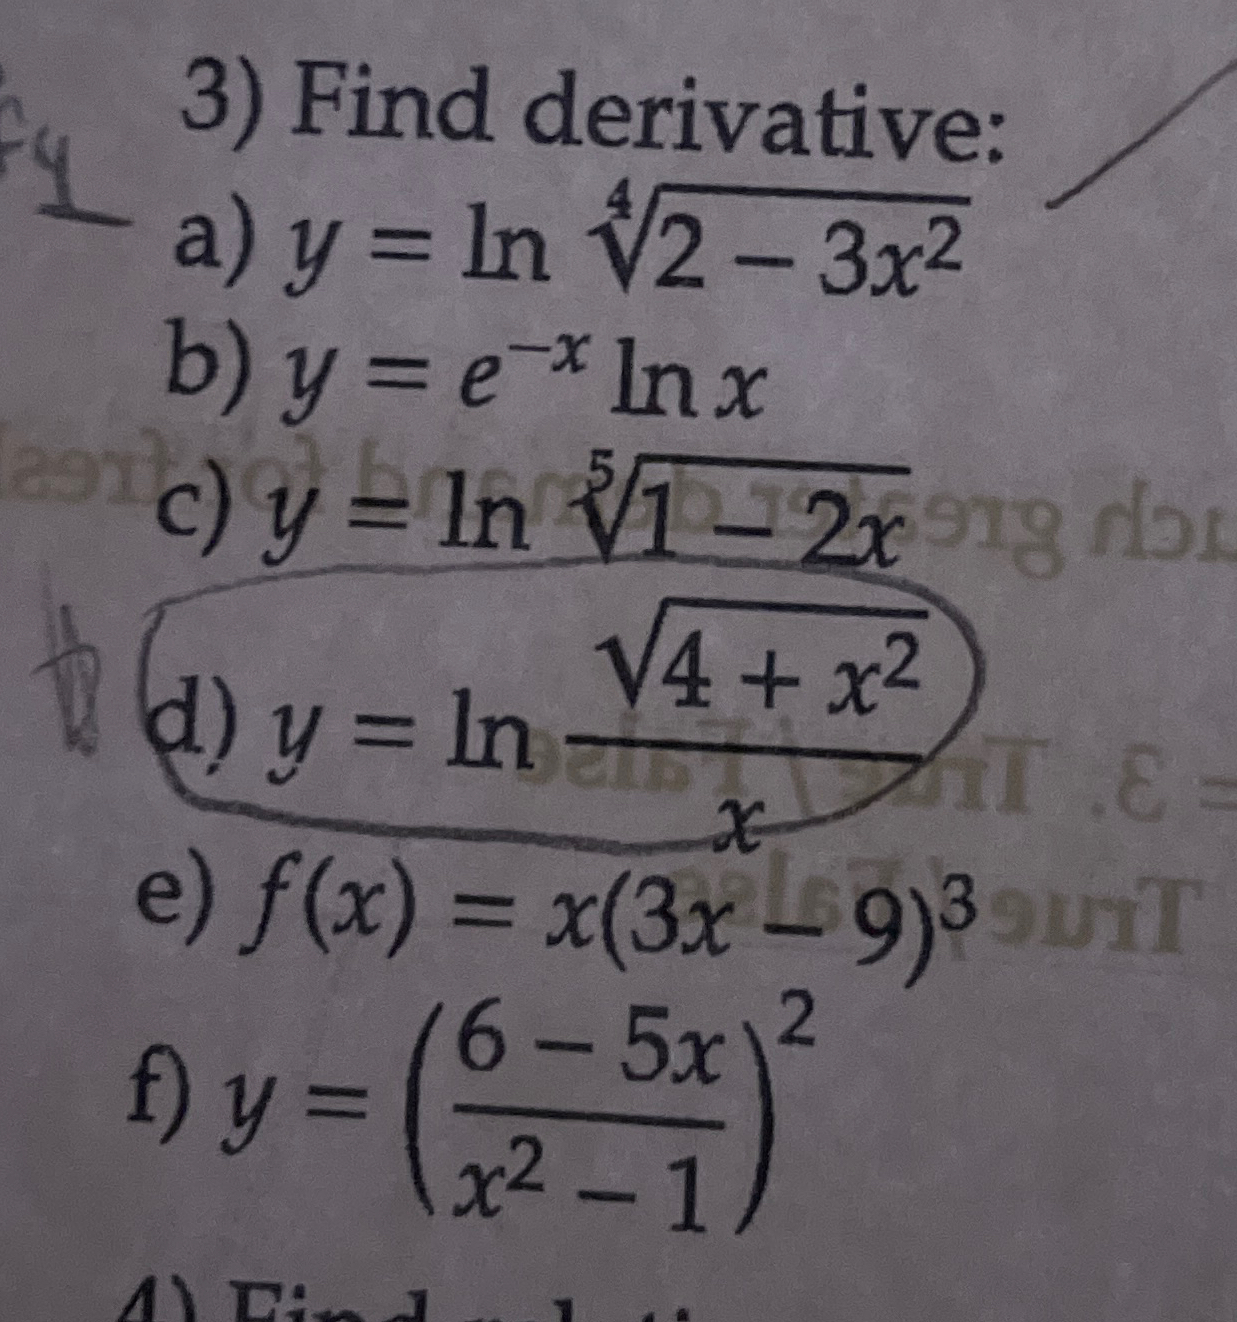 3) Find derivative:
a) y = ln ∜(2 − 3x²)
b) y = e⁻ˣ ln x
c) y = ln ⁵√(1 − 2x)
d) y = ln √(4 + x²) / x
e) f(x) = x(3x − 9)³
f) y = ((6 − 5x) / (x² − 1))²
4) Find